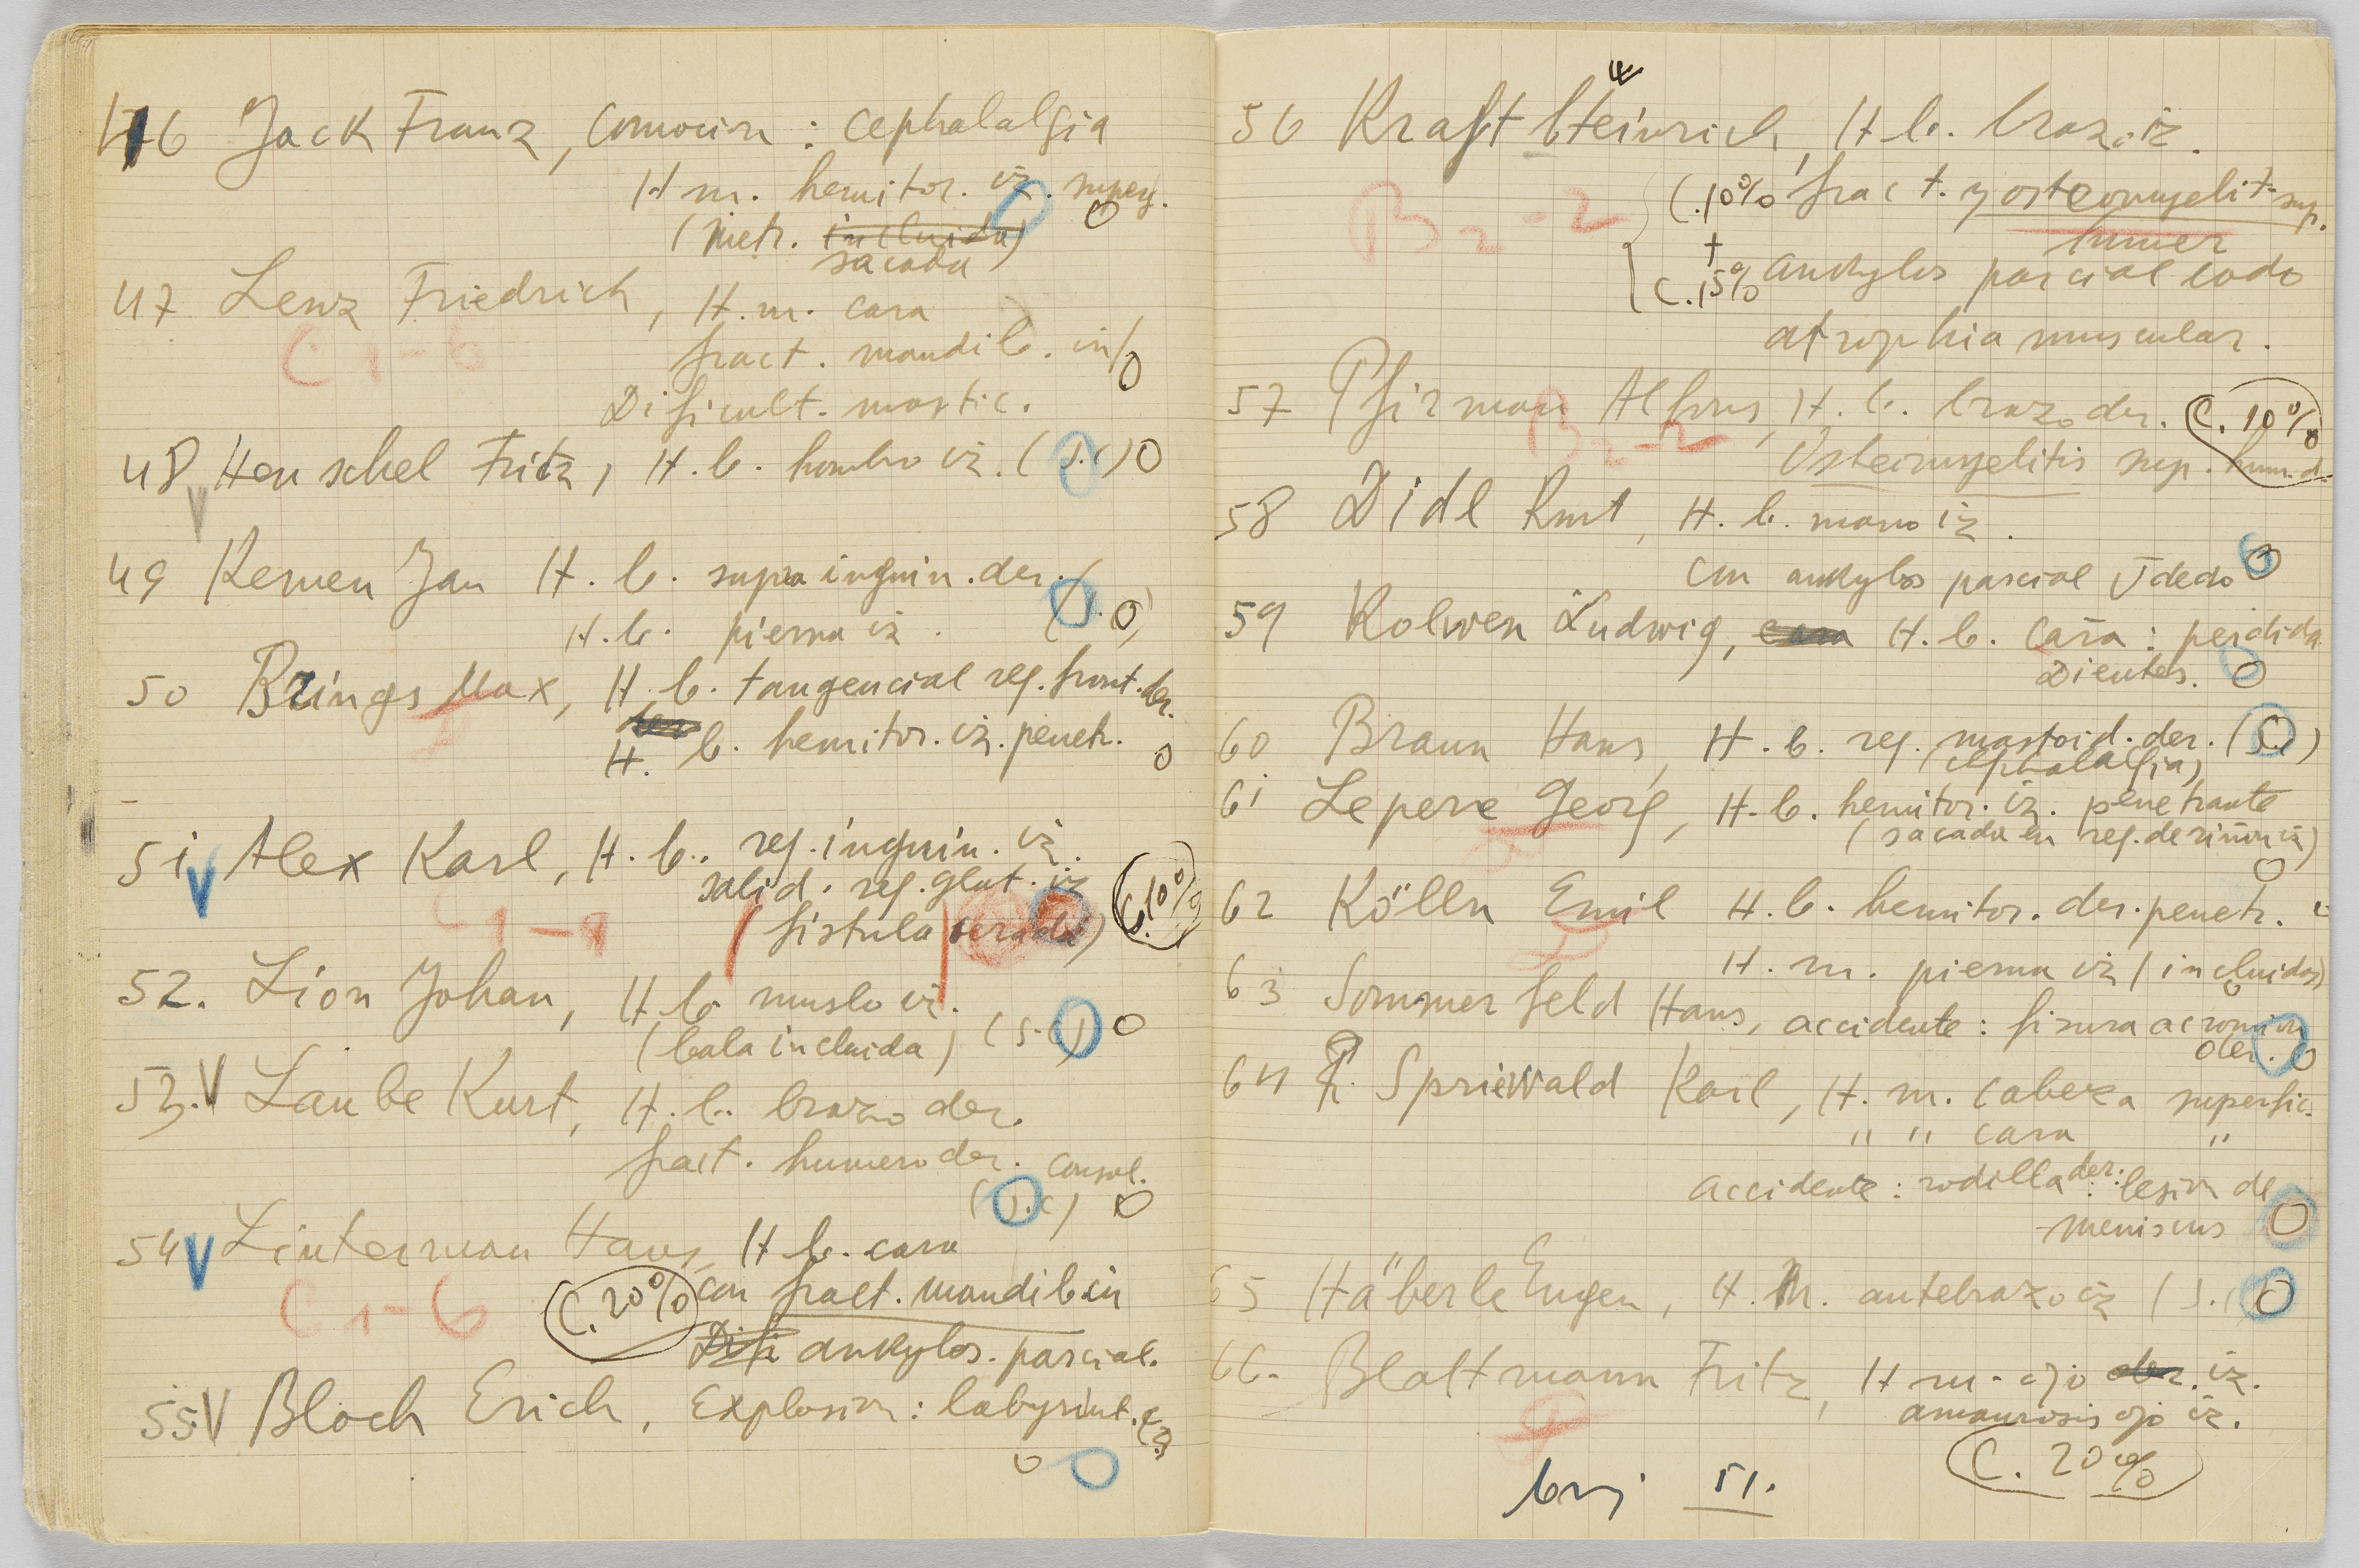 46 Jack Franz, Comocion : Cephalalgia
H m. hemitor. iz. superf. 0
(metr. incluida)
sacada
47 Lenz Friedrich, H. m. cara
C 1-6 fract. mandib. inf 0
Dificult. mastic.
48 Henschel Fritz, H. b. hombro iz. (S.C) 0
V
49 Kemen Jan H. b. supra inguin. der.
H. b. pierna iz. (S. 0)
50 Brings Max, H. b. tangencial reg. front. der.
H. b. hemitor. iz. penetr. 0
51 V Alex Karl, H. b. reg. inguin. iz.
salid. reg. glut. iz
C 1-1 (fistula cerada) C. 10%
52. Lion Johan, H b. muslo iz.
(bala incluida) (S.C) 0
53. V Laube Kurt, H. b. brazo der.
fract. humero der. consol.
(S.C) 0
54 V Linterman Hans, H b. cara
C 1-6 C. 20% con fract. mandib. in
Difi ankylos. parcial.
55 V Bloch Erich, Explosion : labyrint.
0 0
56 Kraft Heinrich, H b. brazo iz.
B 2-2 C. 10% fract. y osteomyelit. sup.
+ humer
C. 15% ankylos parcial codo
atrophia muscular.
57 Pfirman Alfons, H. b. brazo der. C. 10%
B 2-2 Osteomyelitis sup. hum. d.
58 Didl Kurt, H. b. mano iz.
Con ankylos parcial V dedo 0
59 Kolwen Ludwig, cara H. b. cara : perdida
Dientes. 0
60 Braun Hans, H. b. reg. mastoid. der. (S.C)
(cephalalgia)
61 Lepere Georg, H. b. hemitor. iz. penetrante
(sacada en reg. de riñon iz)
0
62 Kölln Emil H. b. hemitor. der. penetr.
H. m. pierna iz (incluidas)
0
63 Sommerfeld Hans, accidente : fisura acromion
der. 0
64 Spriewald Karl, H. m. cabeza superfic.
" " cara "
accidente : rodilla der. : lesion de
meniscus 0
65 Häberle Eugen, H. m. antebrazo iz (S.C) 0
66. Blattmann Fritz, H m. ojo der. iz.
amaurosis ojo iz.
C. 20%
51.